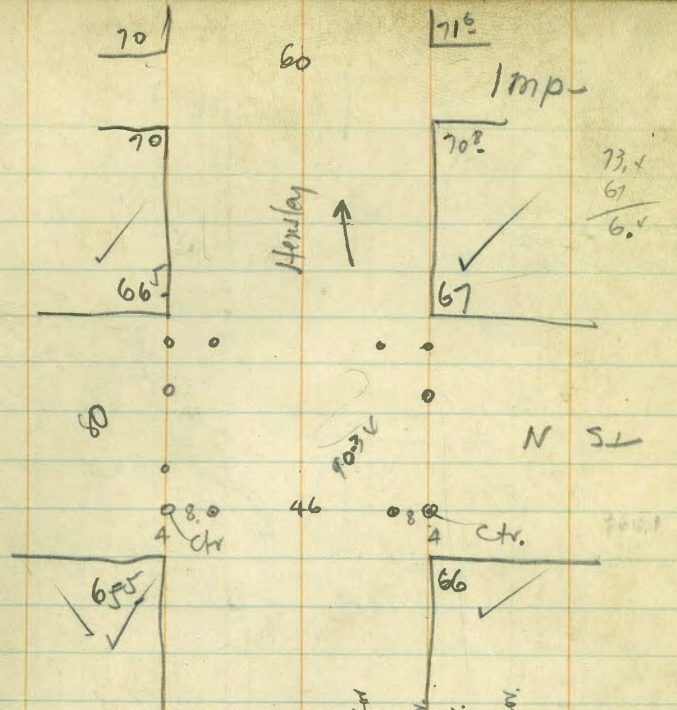 70 71⁶
60
Imp-
70 70⁸
73.4
67
6.4
Hensley
66⁵ 67
80
90-3
N St
8 46 8
4 Ctr 4 Ctr.
65⁵ 66